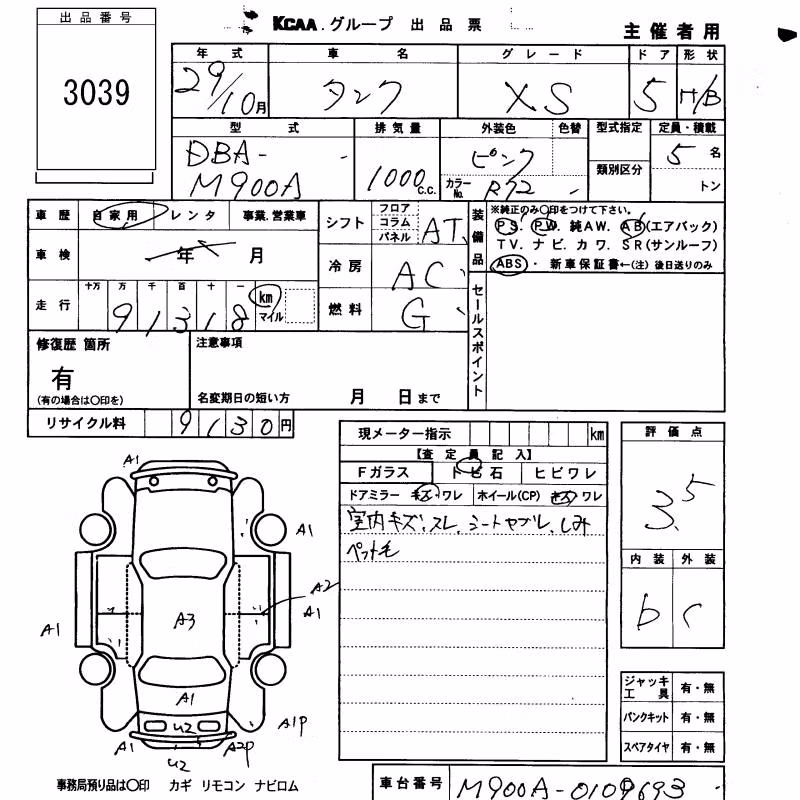 出品番号
3039
KCAA.グループ 出品票
主催者用
年式 車名 グレード ドア 形状
29/10月 タンク XS 5 H/B
型式 排気量 外装色 色替 型式指定 定員・積載
DBA- ピンク 5名
M900A 1000c.c. カラーNo. R72 類別区分 トン
車歴 自家用 レンタ 事業.営業車
シフト フロア コラム パネル AT
装備品 ※純正のみ○印をつけて下さい。
PS. PW. 純AW. AB(エアバック)
TV.ナビ.カワ.SR(サンルーフ)
ABS・新車保証書←(注)後日送りのみ
車検 年 月
冷房 AC
走行 十万 万 千 百 十 一 km マイル
91318
燃料 G
セールスポイント
修復歴 箇所 注意事項
有
(有の場合は○印を) 名変期日の短い方 月 日まで
リサイクル料 9130円
現メーター指示 km
【査定員記入】
Fガラス トビ石 ヒビワレ
ドアミラー キズ.ワレ ホイール(CP) キズ.ワレ
室内キズ、スレ、シートヤブレ、しみ
ペット毛
評価点
3.5
内装 外装
b c
A1
A1
A2
A1
A1
A3
A1
A1P
U2
A1
A2P
U2
ジャッキ工具 有・無
パンクキット 有・無
スペアタイヤ 有・無
事務局預り品は○印 カギ リモコン ナビロム
車台番号 M900A-0109693